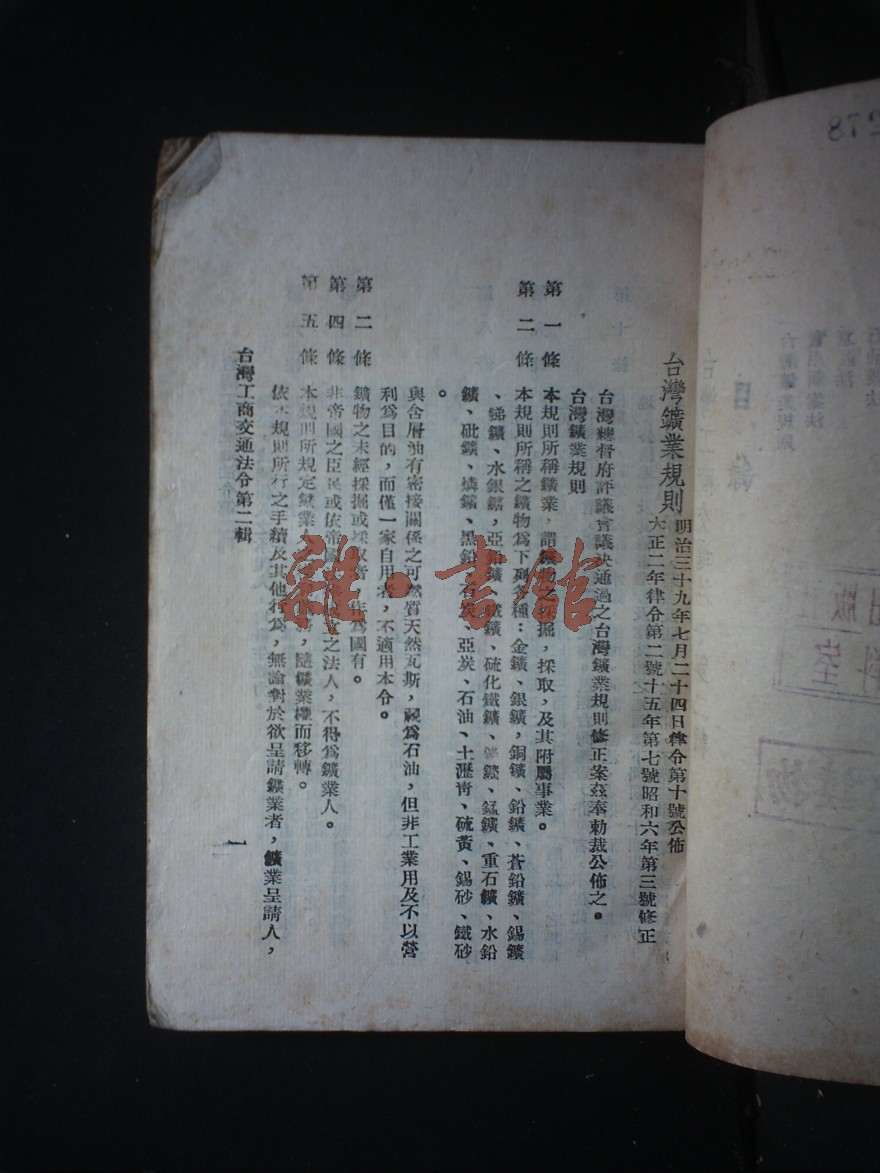 台灣鑛業規則
明治三十九年七月二十四日律令第十號公佈
大正二年律令第二號十五年第七號昭和六年第三號修正
台灣總督府評議會議决通過之台灣鑛業規則修正案玆奉勅裁公佈之。
台灣鑛業規則
第一條 本規則所稱鑛業,謂鑛物之採掘,採取,及其附屬事業。
第二條 本規則所稱之鑛物爲下列各種:金鑛、銀鑛,銅鑛、鉛鑛、蒼鉛鑛、錫鑛
、銻鑛、水銀鑛,亞鉛鑛、鐵鑛、硫化鐵鑛、鑛、錳鑛、重石鑛、水鉛
鑛、砒鑛、燐鑛、黑鉛、石炭、亞炭、石油、土瀝靑、硫黃、錫砂、鐵砂
。
與含層油有密接關係之可燃質天然瓦斯,視爲石油,但非工業用及不以營
利爲目的,而僅一家自用者,不適用本令。
第二條 鑛物之未經採掘或採取者,作爲國有。
第四條 非帝國之臣民或依帝國之法人,不得爲鑛業人。
第五條 本規則所規定鑛業人,隨鑛業權而移轉。
依本規則所行之手續及其他行爲,無論對於欲呈請鑛業者,鑛業呈請人,
台灣工商交通法令第二輯
一
278
目
版
室
雜·書館